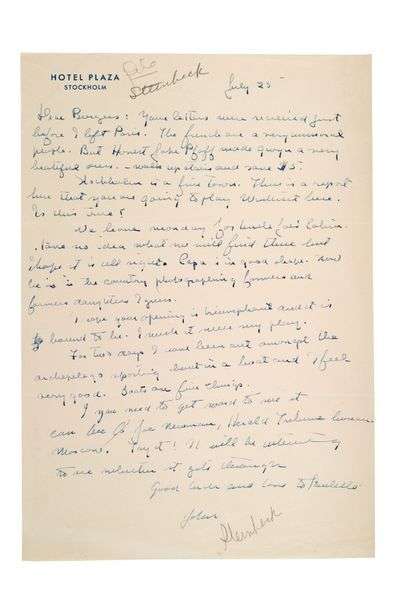 HOTEL PLAZA
STOCKHOLM
Steinbeck
July 25
Dear Burgess: Your letters were received just
before I left Paris. The French are a very unusual
people. But Honest Jake made a very
beautiful
Stockholm is a fine town. There is a report
here that you are going to play here.
Is this true?
We leave Monday for Uncle Joe's Cabin.
Have no idea what we will find there but
I hope it is all right. Capa is in good shape. And
he is in the country photographing farmers and
farmers daughters I guess.
I hope your opening is triumphant and it is
bound to be. I wish it were my play.
For two days I have been out amongst the
archipelago in a boat and I feel
very good. Boats are fine things.
If you need to get word to me it
can be % Joe Newman, Herald Tribune bureau
Moscow. Try it! It will be interesting
to see whether it gets through
Good luck and love to Paulette
John
Steinbeck